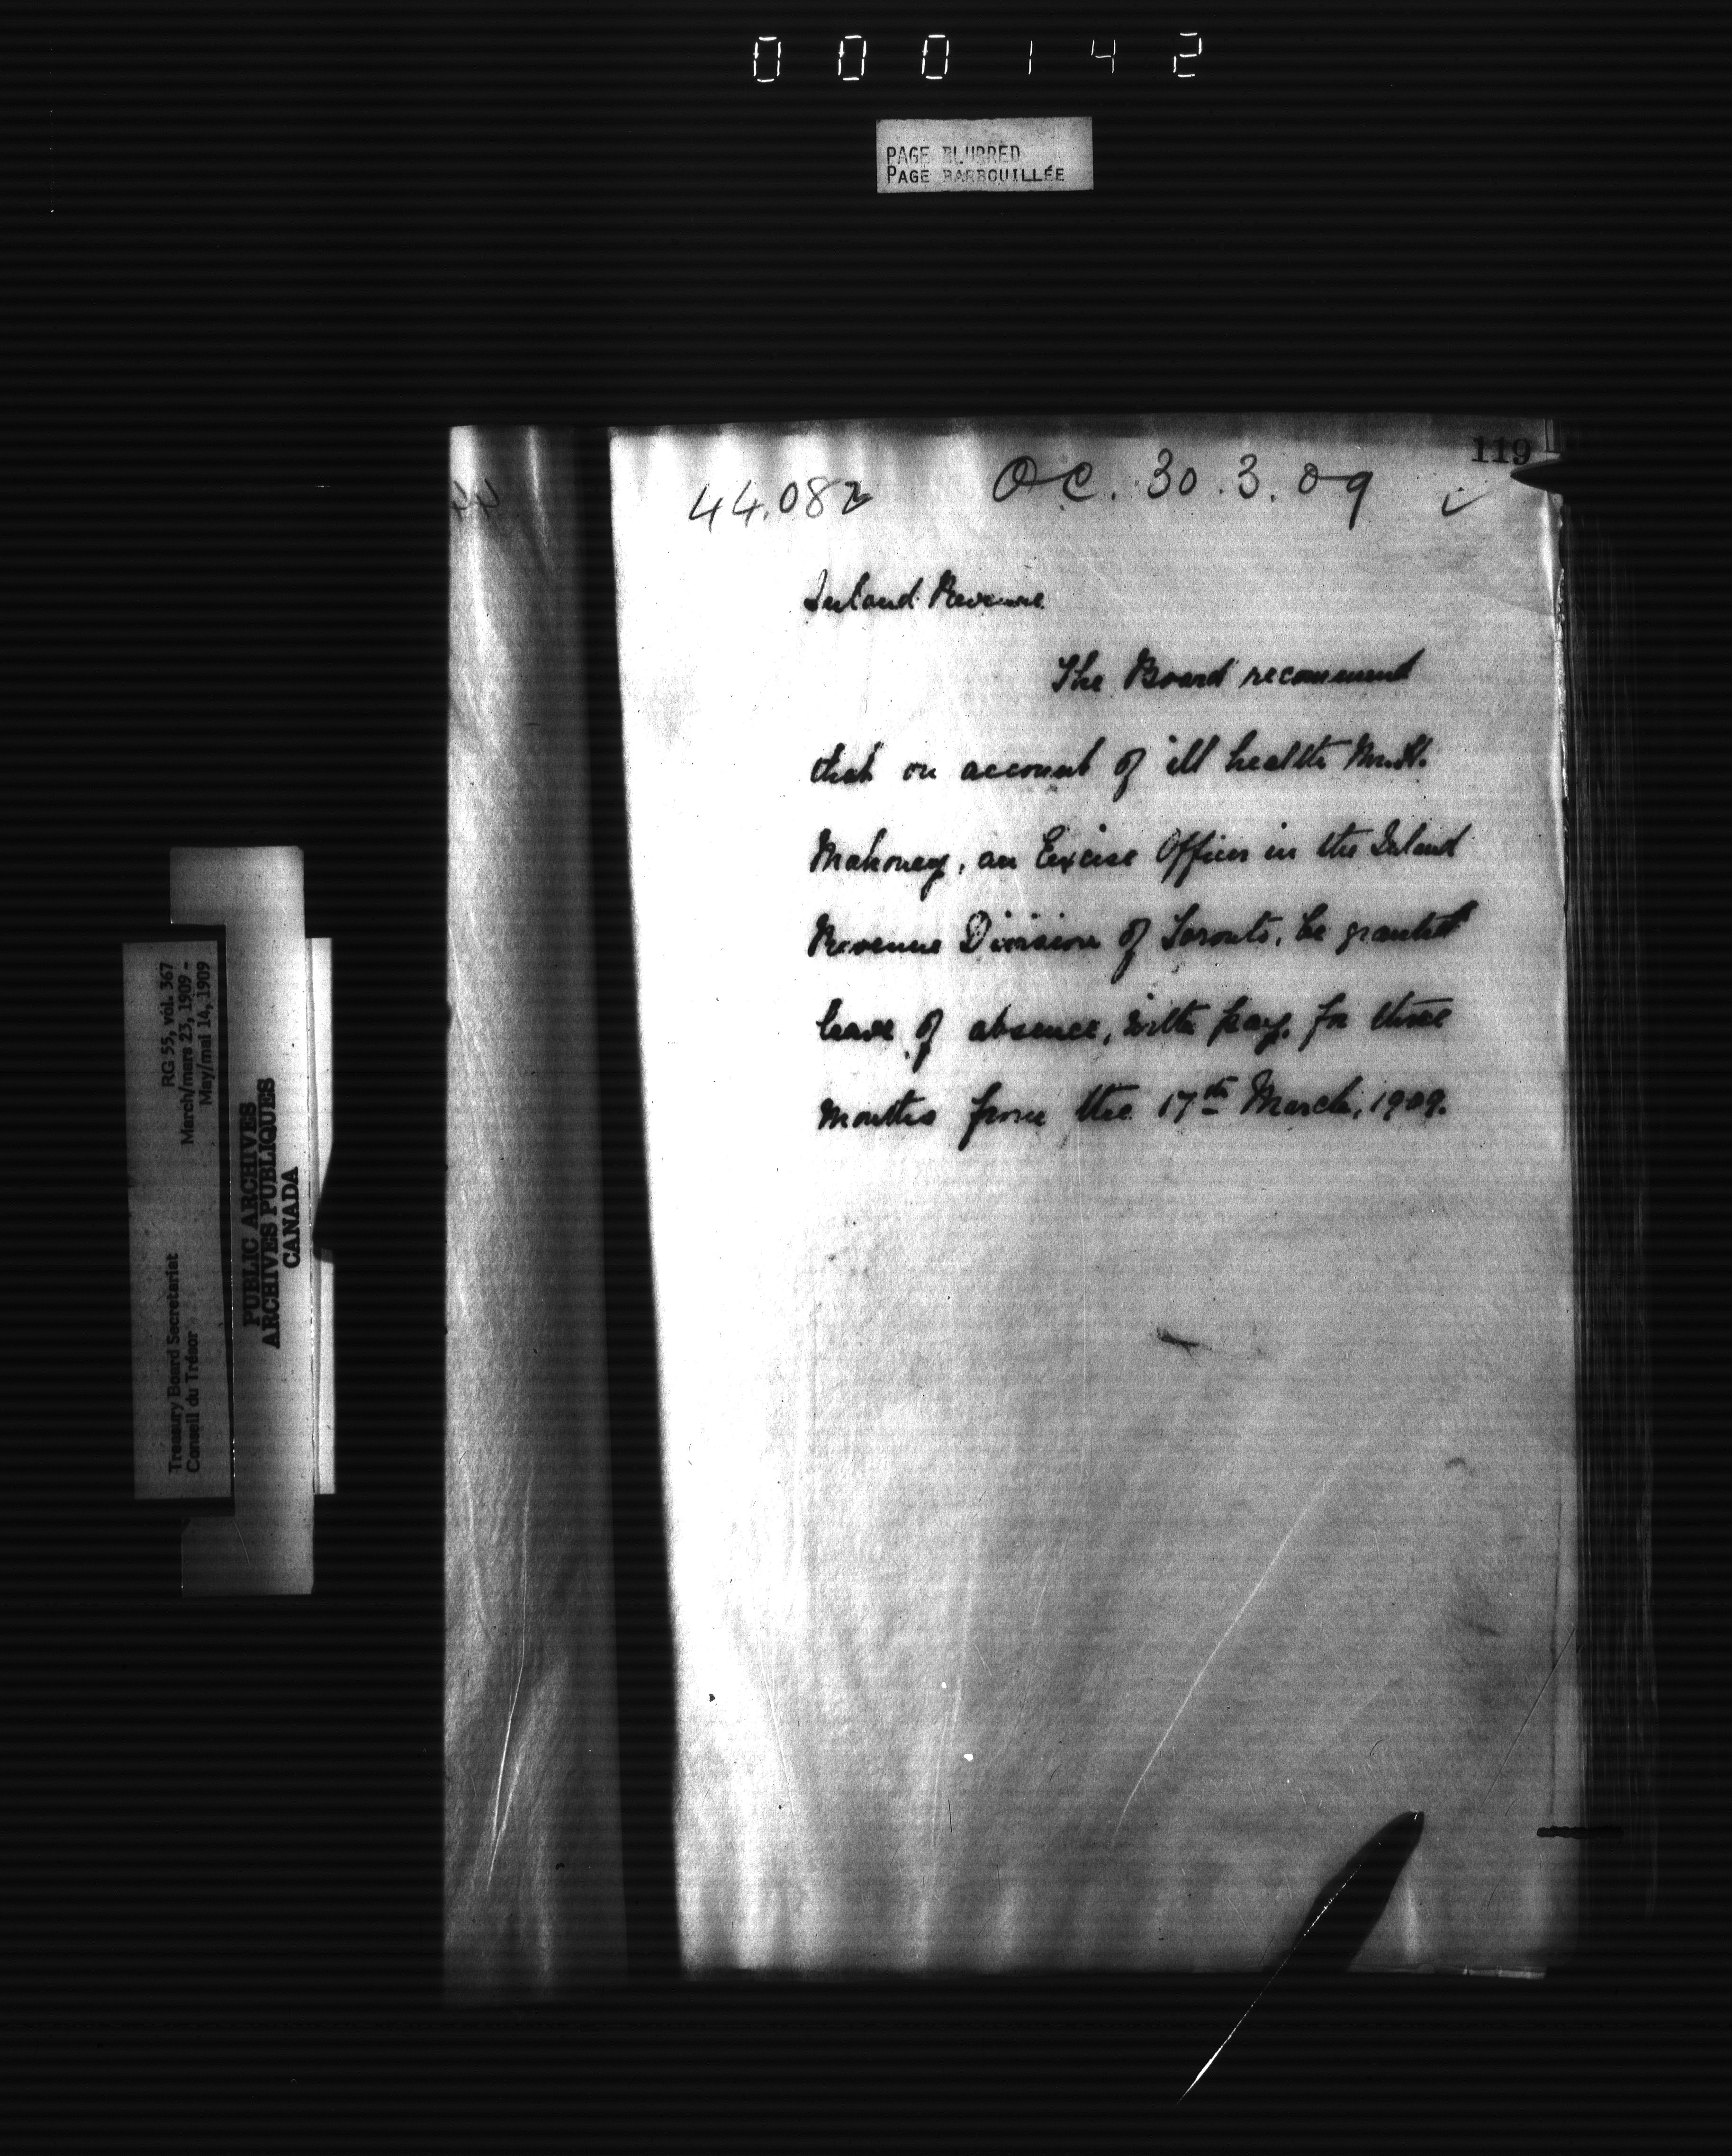 000142
PAGE BLURRED
PAGE BARBOUILLÉE
119
44.082
OC. 30.3.09
Inland Revenue
The Board recommend
that on account of ill health
Mahoney, an Excise Officer in the Inland
Revenue Division of Toronto, be granted
leave of absence, with pay, for three
months from the 17th March, 1909.
RG 55, vol. 367
March/mars 23, 1909 -
May/mai 14, 1909
Treasury Board Secretariat
Conseil du Trésor
PUBLIC ARCHIVES
ARCHIVES PUBLIQUES
CANADA